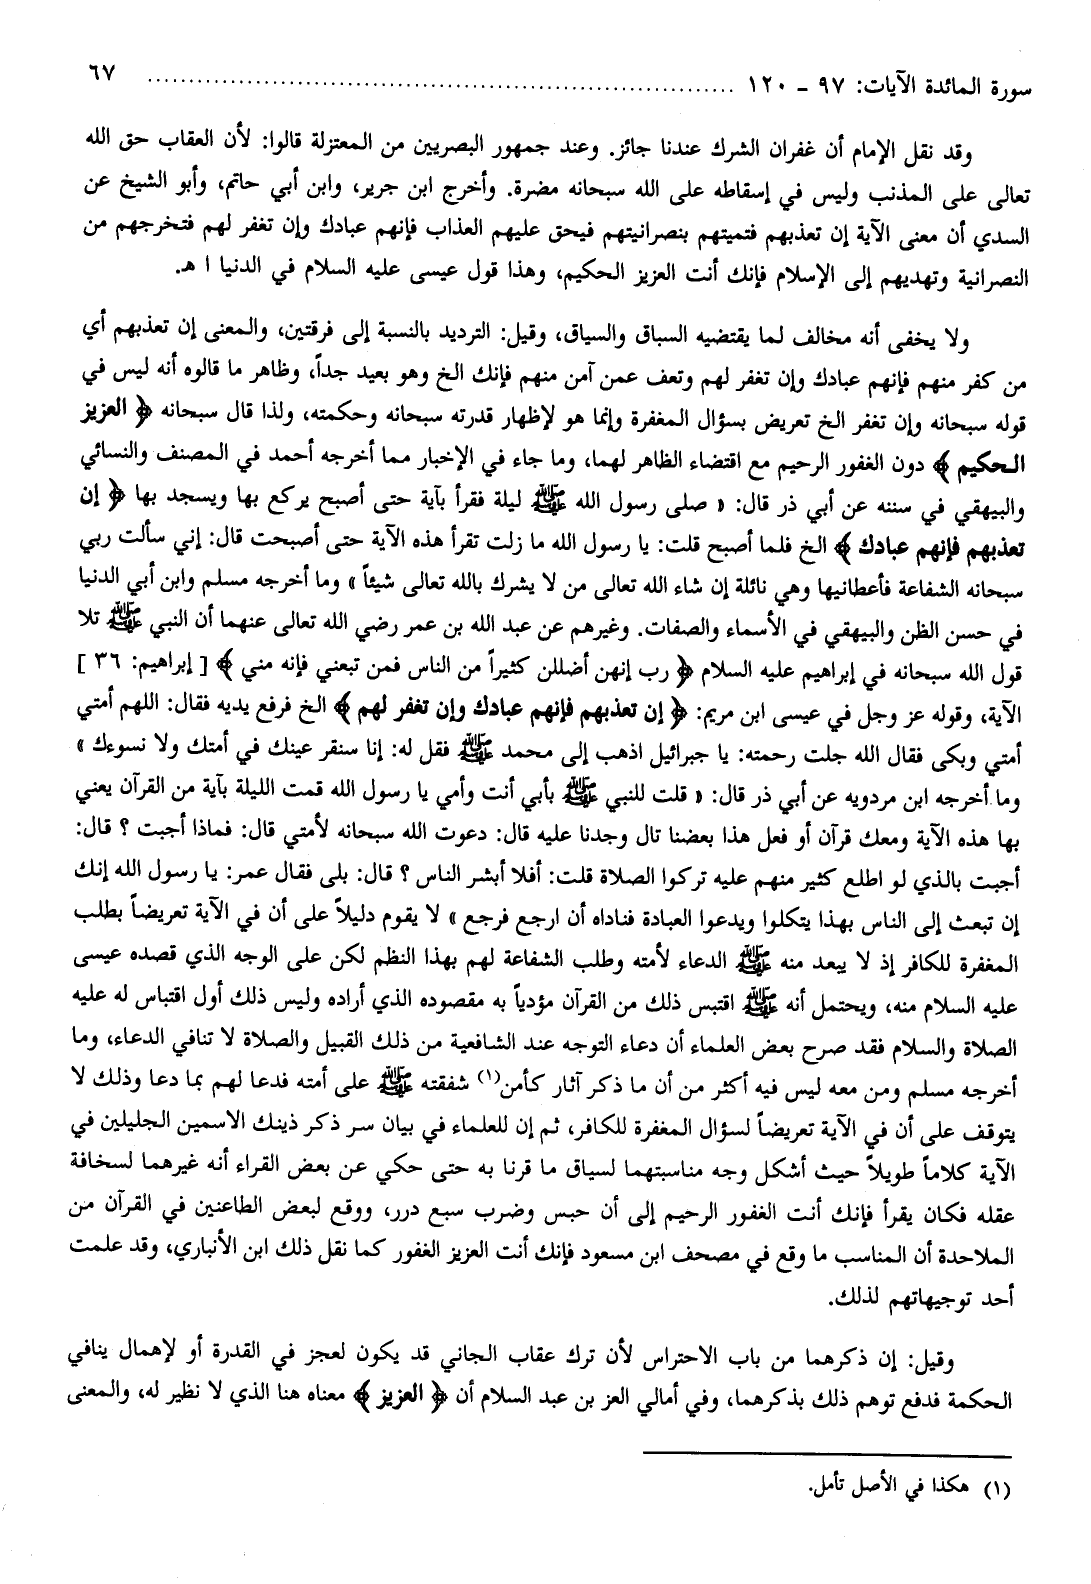 سورة المائدة الآيات: ٩٧ - ١٢٠ ........................ ٦٧
وقد نقل الإمام أن غفران الشرك عندنا جائز. وعند جمهور البصريين من المعتزلة قالوا: لأن العقاب حق الله
تعالى على المذنب وليس في إسقاطه على الله سبحانه مضرة. وأخرج ابن جرير، وابن أبي حاتم، وأبو الشيخ عن
السدي أن معنى الآية إن تعذبهم فتميتهم بنصرانيتهم فيحق عليهم العذاب فإنهم عبادك وإن تغفر لهم فتخرجهم من
النصرانية وتهديهم إلى الإسلام فإنك أنت العزيز الحكيم، وهذا قول عيسى عليه السلام في الدنيا ا هـ.
ولا يخفى أنه مخالف لما يقتضيه السباق والسياق، وقيل: الترديد بالنسبة إلى فرقتين، والمعنى إن تعذبهم أي
من كفر منهم فإنهم عبادك وإن تغفر لهم وتعف عمن آمن منهم فإنك الخ وهو بعيد جداً، وظاهر ما قالوه أنه ليس في
قوله سبحانه وإن تغفر الخ تعريض بسؤال المغفرة وإنما هو لإظهار قدرته سبحانه وحكمته، ولذا قال سبحانه ﴿ العزيز
الحكيم ﴾ دون الغفور الرحيم مع اقتضاء الظاهر لهما، وما جاء في الإخبار مما أخرجه أحمد في المصنف والنسائي
والبيهقي في سننه عن أبي ذر قال: « صلى رسول الله ﷺ ليلة فقرأ بآية حتى أصبح يركع بها ويسجد بها ﴿ إن
تعذبهم فإنهم عبادك ﴾ الخ فلما أصبح قلت: يا رسول الله ما زلت تقرأ هذه الآية حتى أصبحت قال: إني سألت ربي
سبحانه الشفاعة فأعطانيها وهي نائلة إن شاء الله تعالى من لا يشرك بالله تعالى شيئاً » وما أخرجه مسلم وابن أبي الدنيا
في حسن الظن والبيهقي في الأسماء والصفات. وغيرهم عن عبد الله بن عمر رضي الله تعالى عنهما أن النبي ﷺ تلا
قول الله سبحانه في إبراهيم عليه السلام ﴿ رب إنهن أضللن كثيراً من الناس فمن تبعني فإنه مني ﴾ [ إبراهيم: ٣٦ ]
الآية، وقوله عز وجل في عيسى ابن مريم: ﴿ إن تعذبهم فإنهم عبادك وإن تغفر لهم ﴾ الخ فرفع يديه فقال: اللهم أمتي
أمتي وبكى فقال الله جلت رحمته: يا جبرائيل اذهب إلى محمد ﷺ فقل له: إنا سنقر عينك في أمتك ولا نسوءك »
وما أخرجه ابن مردويه عن أبي ذر قال: « قلت للنبي ﷺ بأبي أنت وأمي يا رسول الله قمت الليلة بآية من القرآن يعني
بها هذه الآية ومعك قرآن أو فعل هذا بعضنا تال وجدنا عليه قال: دعوت الله سبحانه لأمتي قال: فماذا أجبت ؟ قال:
أجبت بالذي لو اطلع كثير منهم عليه تركوا الصلاة قلت: أفلا أبشر الناس ؟ قال: بلى فقال عمر: يا رسول الله إنك
إن تبعث إلى الناس بهذا يتكلوا ويدعوا العبادة فناداه أن ارجع فرجع » لا يقوم دليلاً على أن في الآية تعريضاً بطلب
المغفرة للكافر إذ لا يبعد منه ﷺ الدعاء لأمته وطلب الشفاعة لهم بهذا النظم لكن على الوجه الذي قصده عيسى
عليه السلام منه، ويحتمل أنه ﷺ اقتبس ذلك من القرآن مؤدياً به مقصوده الذي أراده وليس ذلك أول اقتباس له عليه
الصلاة والسلام فقد صرح بعض العلماء أن دعاء التوجه عند الشافعية من ذلك القبيل والصلاة لا تنافي الدعاء، وما
أخرجه مسلم ومن معه ليس فيه أكثر من أن ما ذكر آثار كأمن(١) شفقته ﷺ على أمته فدعا لهم بما دعا وذلك لا
يتوقف على أن في الآية تعريضاً لسؤال المغفرة للكافر، ثم إن للعلماء في بيان سر ذكر ذينك الاسمين الجليلين في
الآية كلاماً طويلاً حيث أشكل وجه مناسبتهما لسياق ما قرنا به حتى حكي عن بعض القراء أنه غيرهما لسخافة
عقله فكان يقرأ فإنك أنت الغفور الرحيم إلى أن حبس وضرب سبع درر، ووقع لبعض الطاعنين في القرآن من
الملاحدة أن المناسب ما وقع في مصحف ابن مسعود فإنك أنت العزيز الغفور كما نقل ذلك ابن الأنباري، وقد علمت
أحد توجيهاتهم لذلك.
وقيل: إن ذكرهما من باب الاحتراس لأن ترك عقاب الجاني قد يكون لعجز في القدرة أو لإهمال ينافي
الحكمة فدفع توهم ذلك بذكرهما، وفي أمالي العز بن عبد السلام أن ﴿ العزيز ﴾ معناه هنا الذي لا نظير له، والمعنى
(١) هكذا في الأصل تأمل.